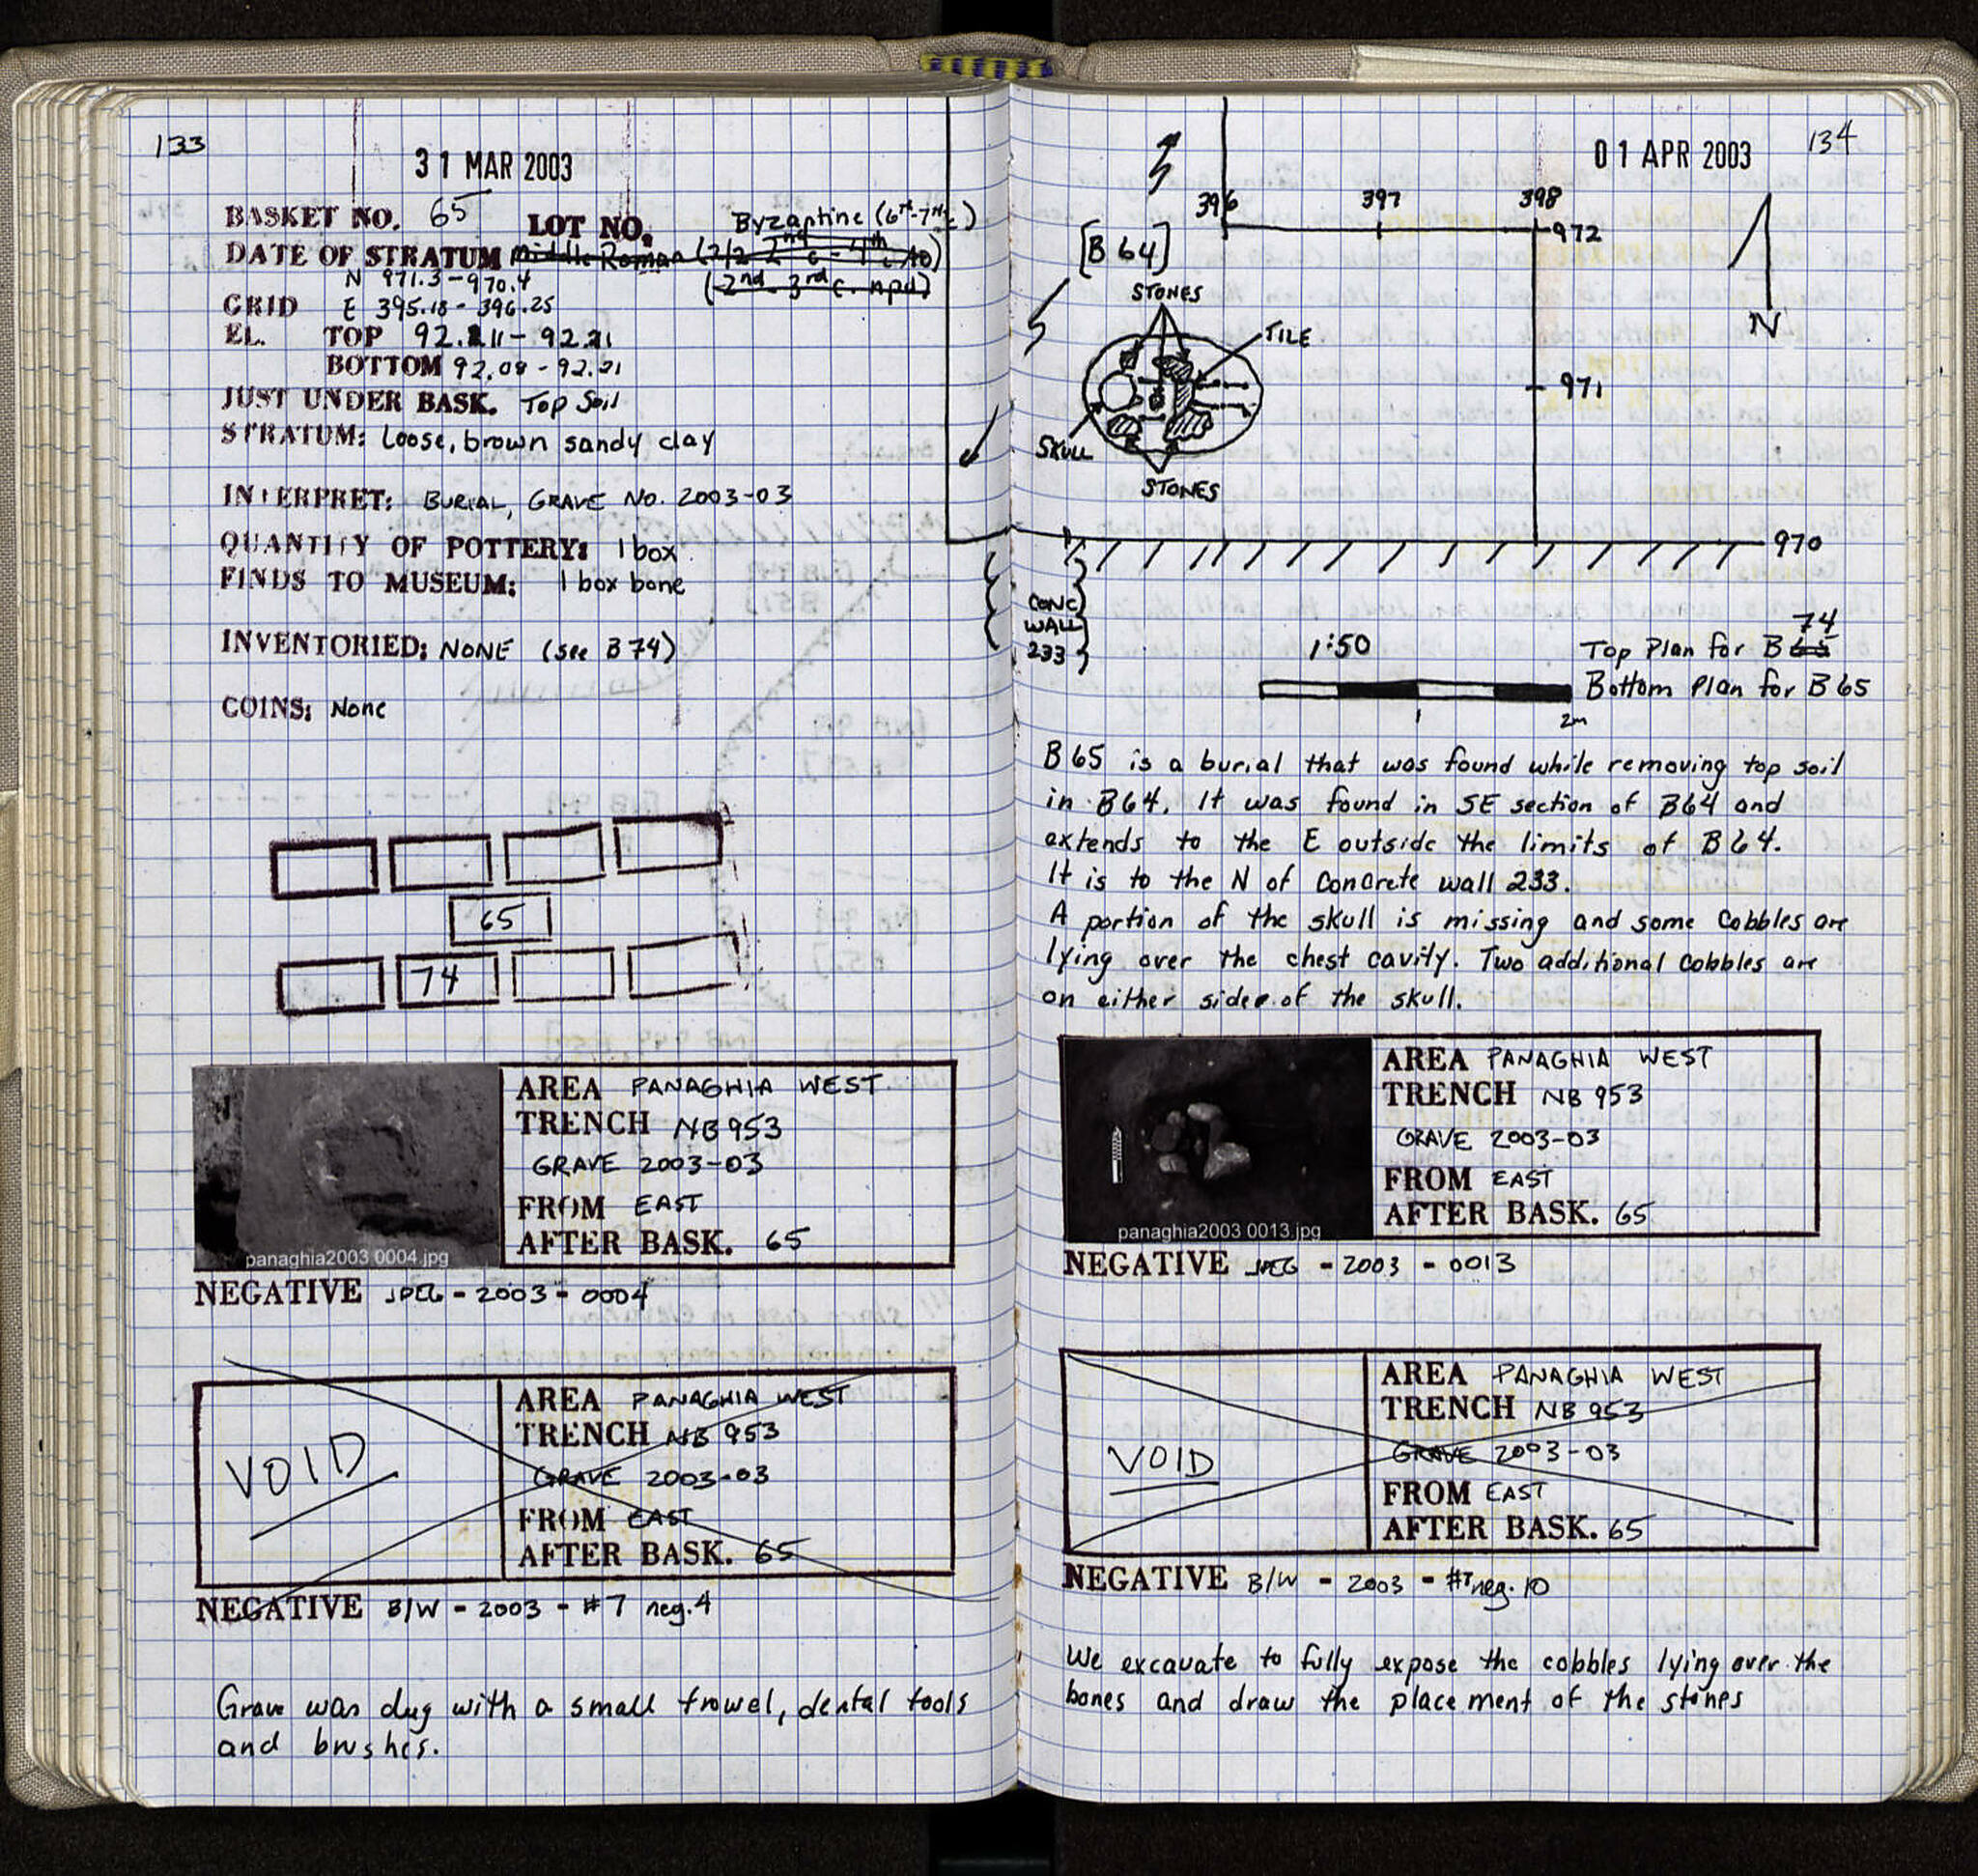 133
31 MAR 2003
BASKET NO. 65 LOT NO.
Byzantine (6th-7th c)
DATE OF STRATUM Middle Roman (2/2 2nd c - 4th c AD)
(2nd - 3rd c. npd)
N 971.3-970.4
GRID E 395.18-396.25
EL. TOP 92.11-92.21
BOTTOM 92.08-92.21
JUST UNDER BASK. Top Soil
STRATUM: Loose, brown sandy clay
INTERPRET: BURIAL, GRAVE NO. 2003-03
QUANTITY OF POTTERY: 1 box
FINDS TO MUSEUM: 1 box bone
INVENTORIED: NONE (see B74)
COINS: None
65
74
panaghia2003 0004.jpg
AREA PANAGHIA WEST
TRENCH NB 953
GRAVE 2003-03
FROM EAST
AFTER BASK. 65
NEGATIVE JPEG-2003-0004
VOID
AREA PANAGHIA WEST
TRENCH NB 953
GRAVE 2003-03
FROM EAST
AFTER BASK. 65
NEGATIVE B/W-2003-#7 neg.4
Grave was dug with a small trowel, dental tools
and brushes.
01 APR 2003
134
396 397 398
972
[B64]
N
STONES
TILE
971
SKULL
STONES
970
CONC
WALL
233
1:50
74
Top Plan for B 65
Bottom Plan for B65
1 2m
B65 is a burial that was found while removing top soil
in B64. It was found in SE section of B64 and
extends to the E outside the limits of B64.
It is to the N of Concrete wall 233.
A portion of the skull is missing and some Cobbles are
lying over the chest cavity. Two additional cobbles are
on either side of the skull.
panaghia2003 0013.jpg
AREA PANAGHIA WEST
TRENCH NB 953
GRAVE 2003-03
FROM EAST
AFTER BASK. 65
NEGATIVE JPEG-2003-0013
VOID
AREA PANAGHIA WEST
TRENCH NB 953
GRAVE 2003-03
FROM EAST
AFTER BASK. 65
NEGATIVE B/W-2003-#7 neg.10
We excavate to fully expose the cobbles lying over the
bones and draw the placement of the stones